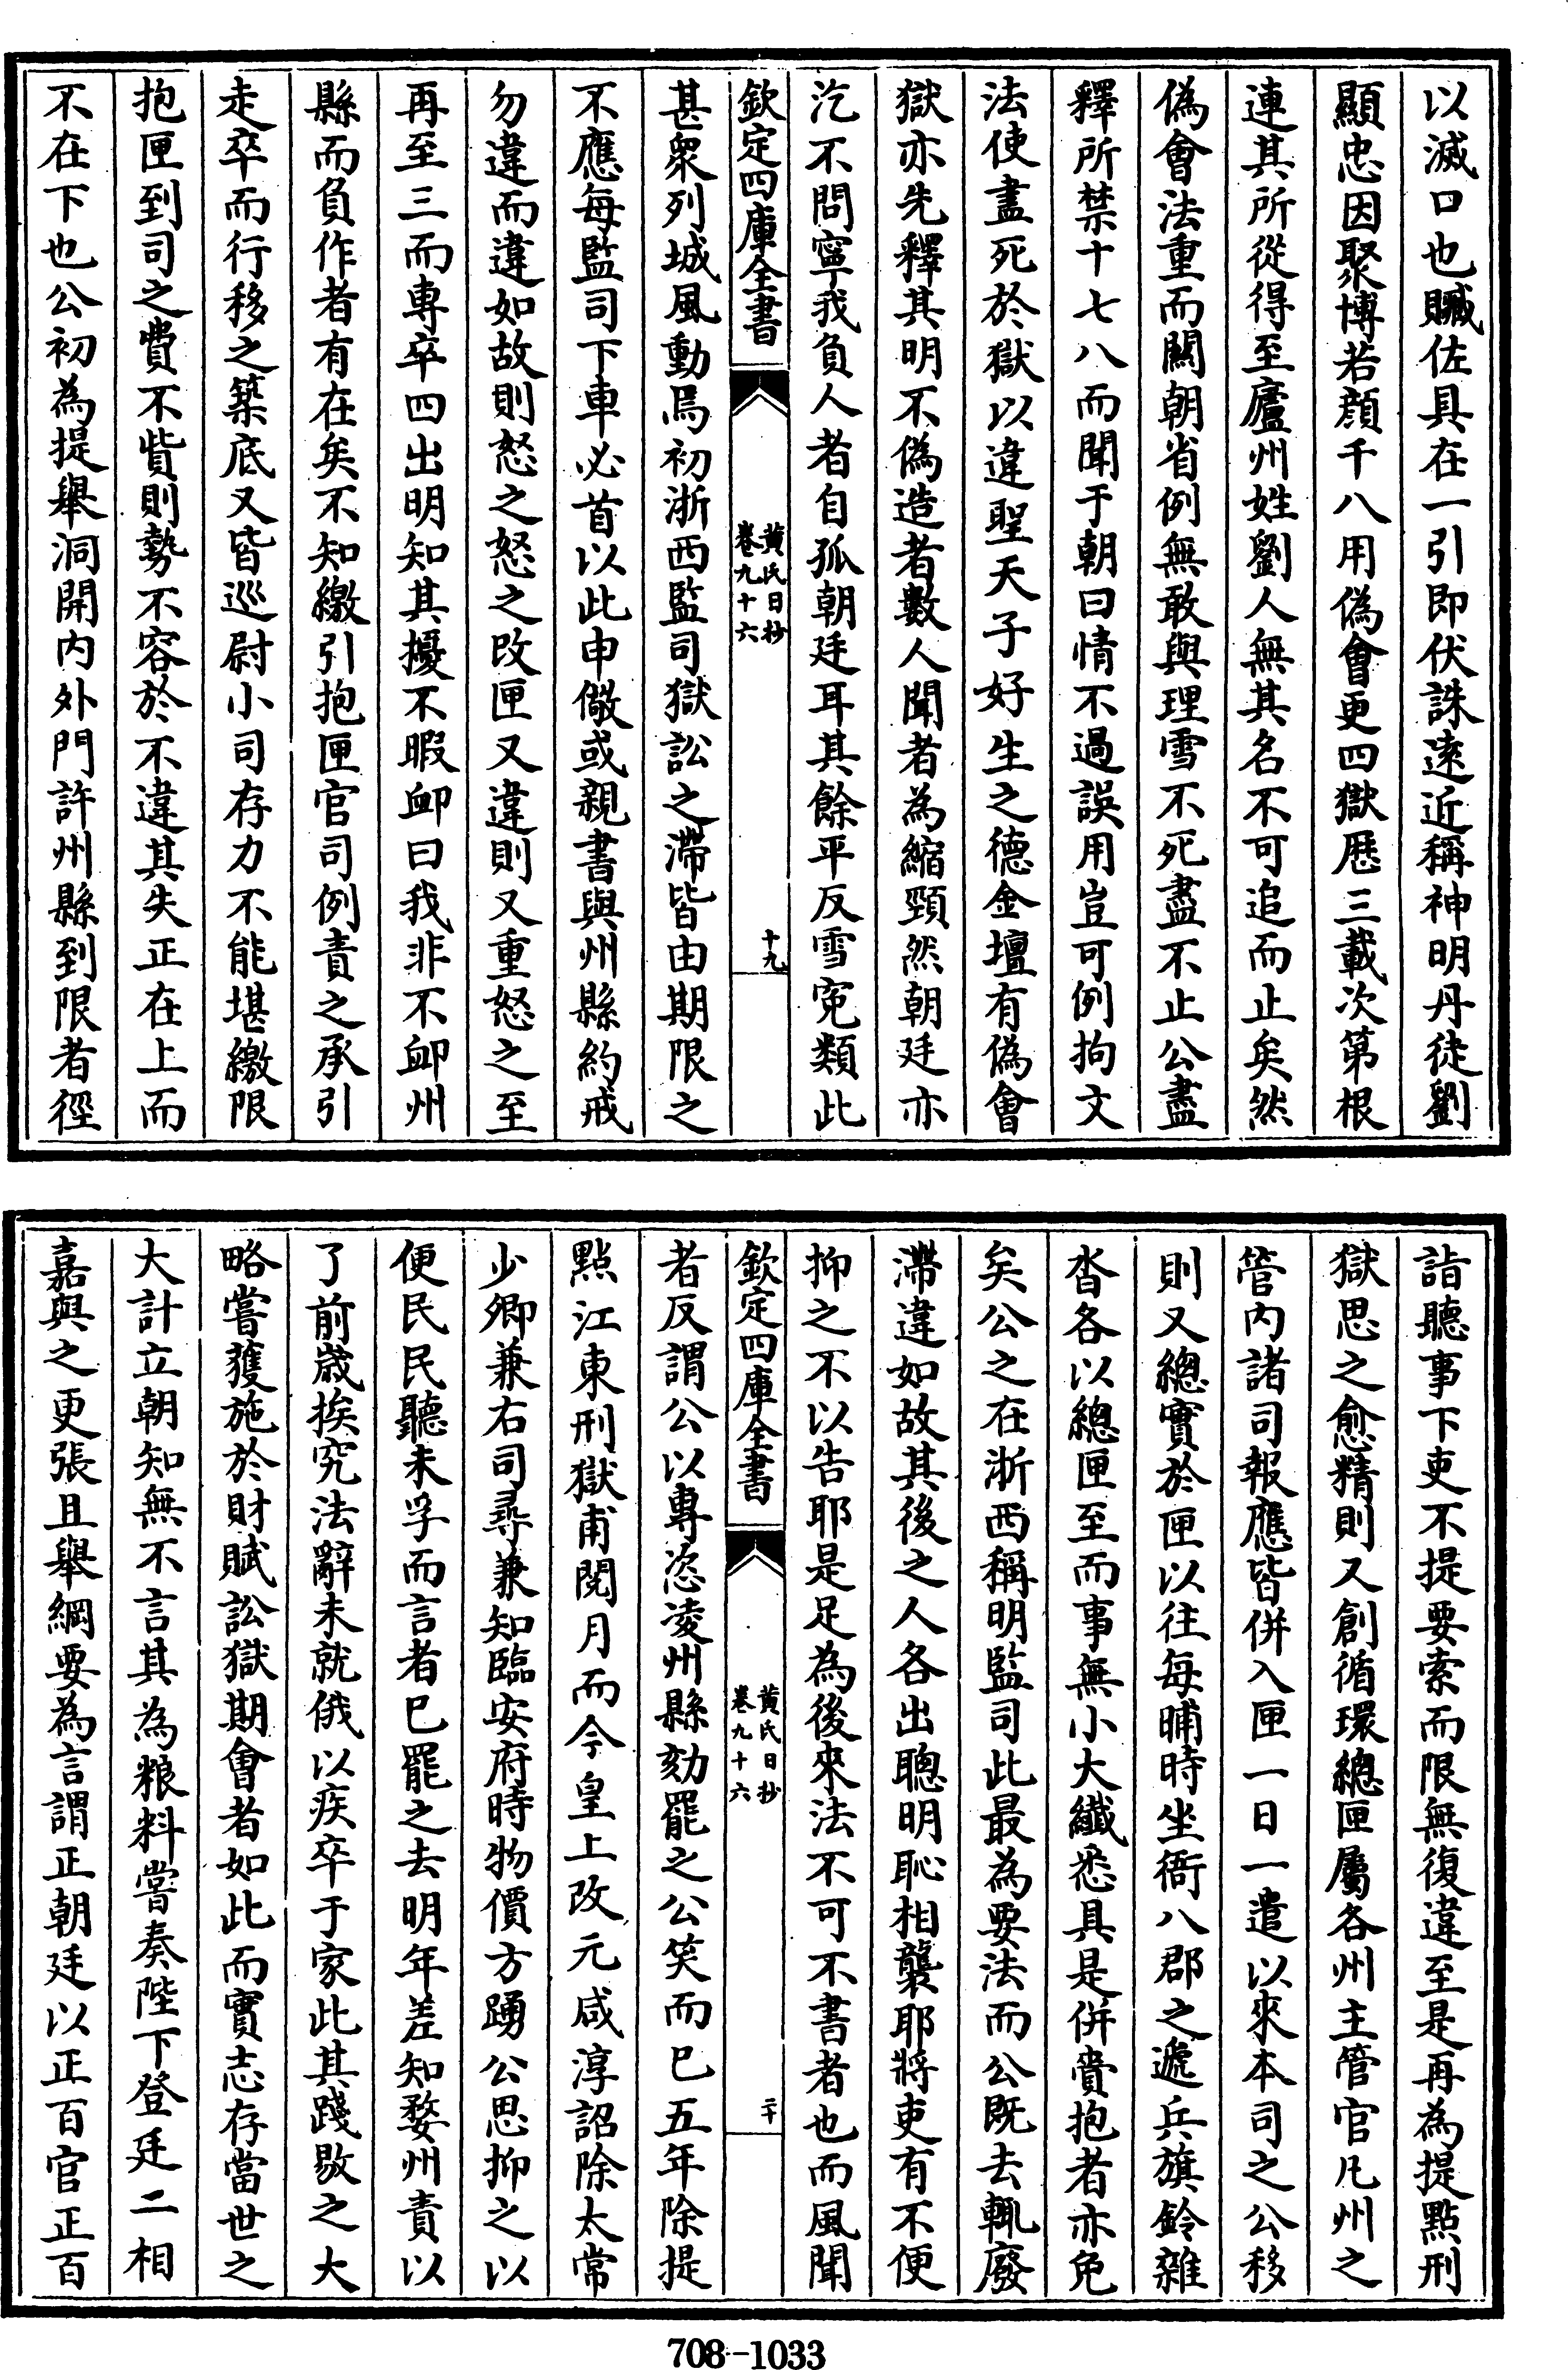 以滅口也贓佐具在一引即伏誅遠近稱神明丹徒劉
顯忠因聚博若顔千八用偽會更四獄歴三載次第根
連其所從得至廬州姓劉人無其名不可追而止矣然
偽會法重而闗朝省例無敢與理雪不死盡不止公盡
釋所禁十七八而聞于朝曰情不過誤用豈可例拘文
法使盡死於獄以違聖天子好生之德金壇有偽會
獄亦先釋其明不偽造者數人聞者為縮頸然朝廷亦
汔不問寧我負人者自孤朝廷耳其餘平反雪寃類此
欽定四庫全書
黄氏日抄
卷九十六
十九
甚衆列城風動焉初浙西監司獄訟之滯皆由期限之
不應每監司下車必首以此申儆或親書與州縣約戒
勿違而違如故則怒之怒之改匣又違則又重怒之至
再至三而專卒四出明知其擾不暇衈曰我非不衈州
縣而負作者有在矣不知繳引抱匣官司例責之承引
走卒而行移之築底又皆巡尉小司存力不能堪繳限
抱匣到司之費不貲則勢不容於不違其失正在上而
不在下也公初為提舉洞開内外門許州縣到限者徑
詣聽事下吏不提要索而限無復違至是再為提點刑
獄思之愈精則又創循環總匣屬各州主管官凡州之
管内諸司報應皆併入匣一日一遣以來本司之公移
則又總實於匣以往每晡時坐衙八郡之遞兵旗鈴雜
沓各以總匣至而事無小大纎悉具是併賫抱者亦免
矣公之在浙西稱明監司此最為要法而公既去輒廢
滯違如故其後之人各出聰明恥相襲耶將吏有不便
抑之不以告耶是足為後來法不可不書者也而風聞
欽定四庫全書
黄氏日抄
卷九十六
二十
者反謂公以專恣凌州縣劾罷之公笑而已五年除提
點江東刑獄甫閲月而今皇上改元咸淳詔除太常
少卿兼右司尋兼知臨安府時物價方踴公思抑之以
便民民聽未孚而言者已罷之去明年差知婺州責以
了前歲挨究法辭未就俄以疾卒于家此其踐敭之大
略嘗獲施於財賦訟獄期會者如此而實志存當世之
大計立朝知無不言其為粮料嘗奏陛下登廷二相
嘉與之更張且舉綱要為言謂正朝廷以正百官正百
708-1033